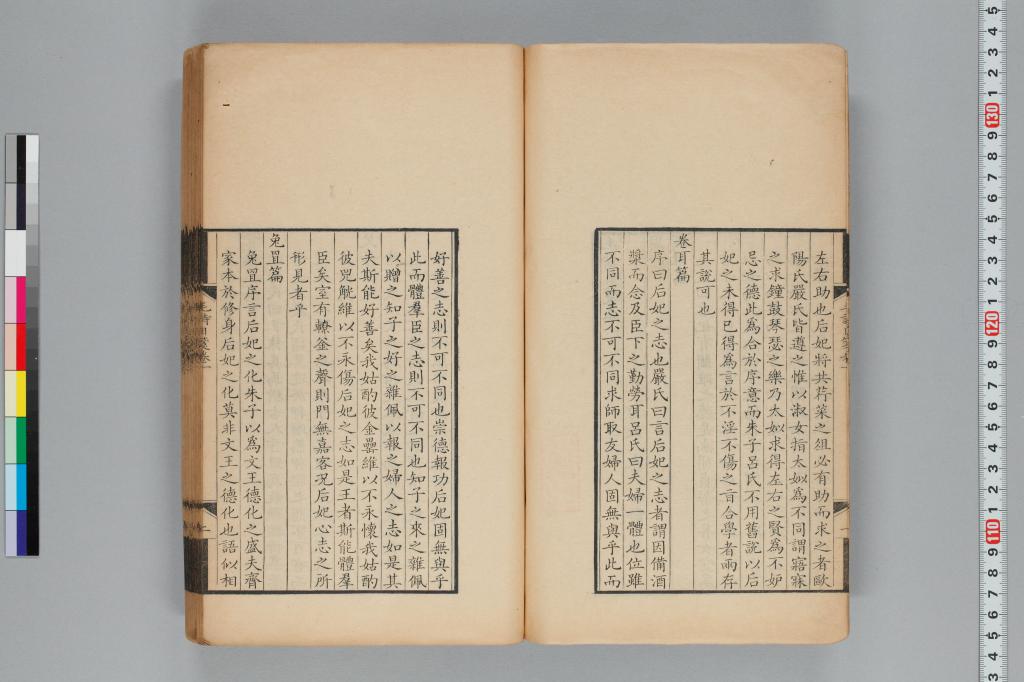 左右助也后妃將共荇菜之俎必有助而求之者歐
陽氏嚴氏皆遵之惟以淑女指太姒為不同謂寤寐
之求鐘鼓琴瑟之樂乃太姒求得左右之賢為不妒
忌之德此為合於序意而朱子呂氏不用舊說以后
妃之未得已得為言於不淫不傷之言合學者兩存
其說可也
卷耳篇
序曰后妃之志也嚴氏曰言后妃之志者謂因備酒
漿而念及臣下之勤勞耳呂氏曰夫婦一體也位雖
不同而志不可不同求師取友婦人固無與乎此而
好善之志則不可不同也崇德報功后妃固無與乎
此而體羣臣之志則不可不同也知子之來之雜佩
以贈之知子之好之雜佩以報之婦人之志如是其
夫斯能好善矣我姑酌彼金罍維以不永懷我姑酌
彼兕觥維以不永傷后妃之志如是王者斯能體羣
臣矣室有轑釜之聲則門無嘉客況后妃心志之所
形見者乎
兔罝篇
兔罝序言后妃之化朱子以為文王德化之盛夫齊
家本於修身后妃之化莫非文王之德化也語似相
5
4
3
2
1
130
9
8
7
6
5
4
3
2
1
120
9
8
7
6
5
4
3
2
1
110
9
8
7
6
5
4
3